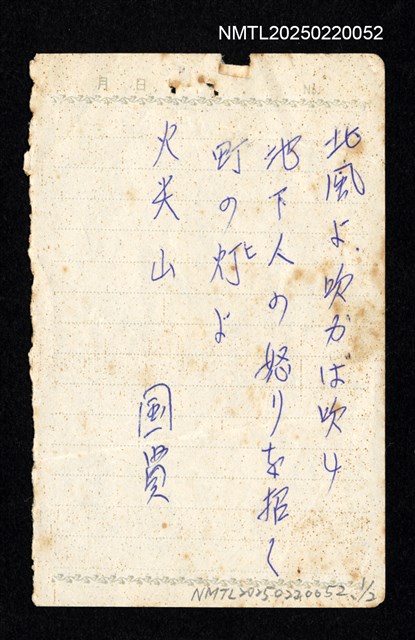 NMTL20250220052
月 日
No.
北風よ、吹かば吹け
地下人の怒りを招く
町の灯よ
ヒ
火炎山
国貴
NMTL20250220052 1/2